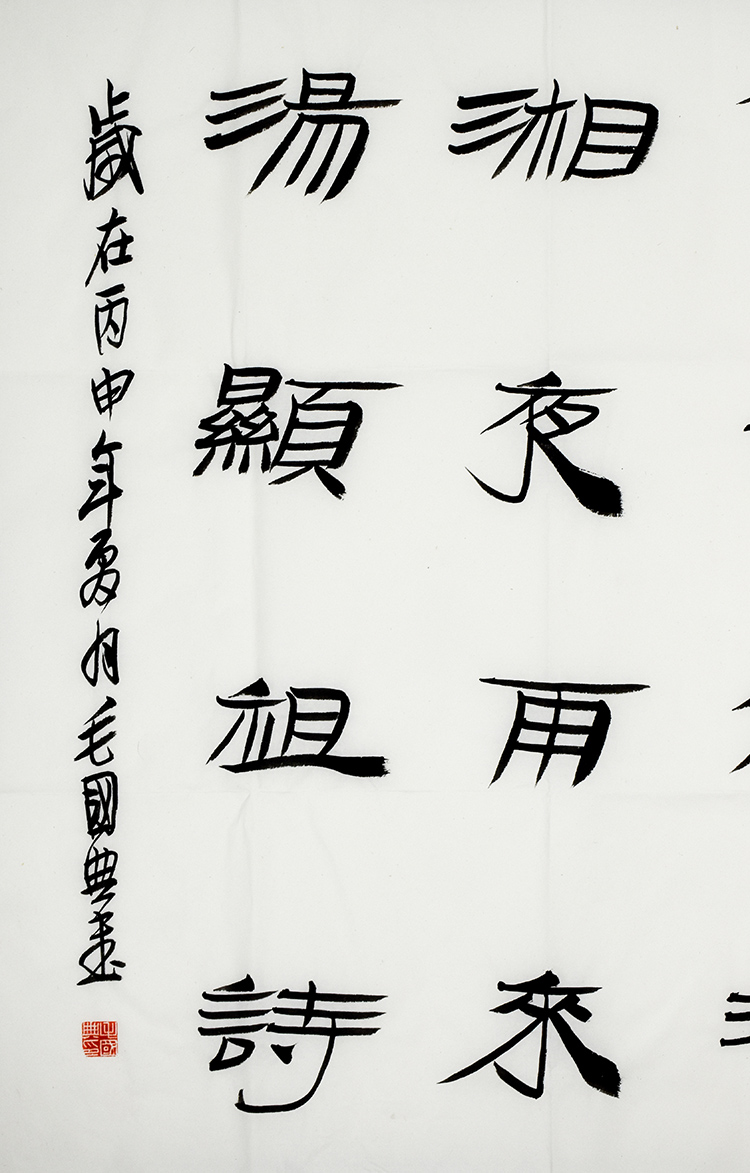 湘夜雨來
湯顯祖詩
歲在丙申年夏月毛國典書
毛國典印